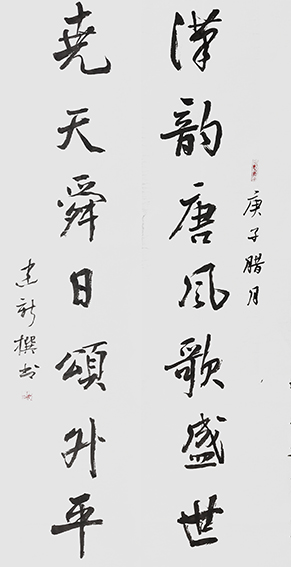 庚子腊月
漢韵唐风歌盛世
尧天舜日頌升平
建新撰书